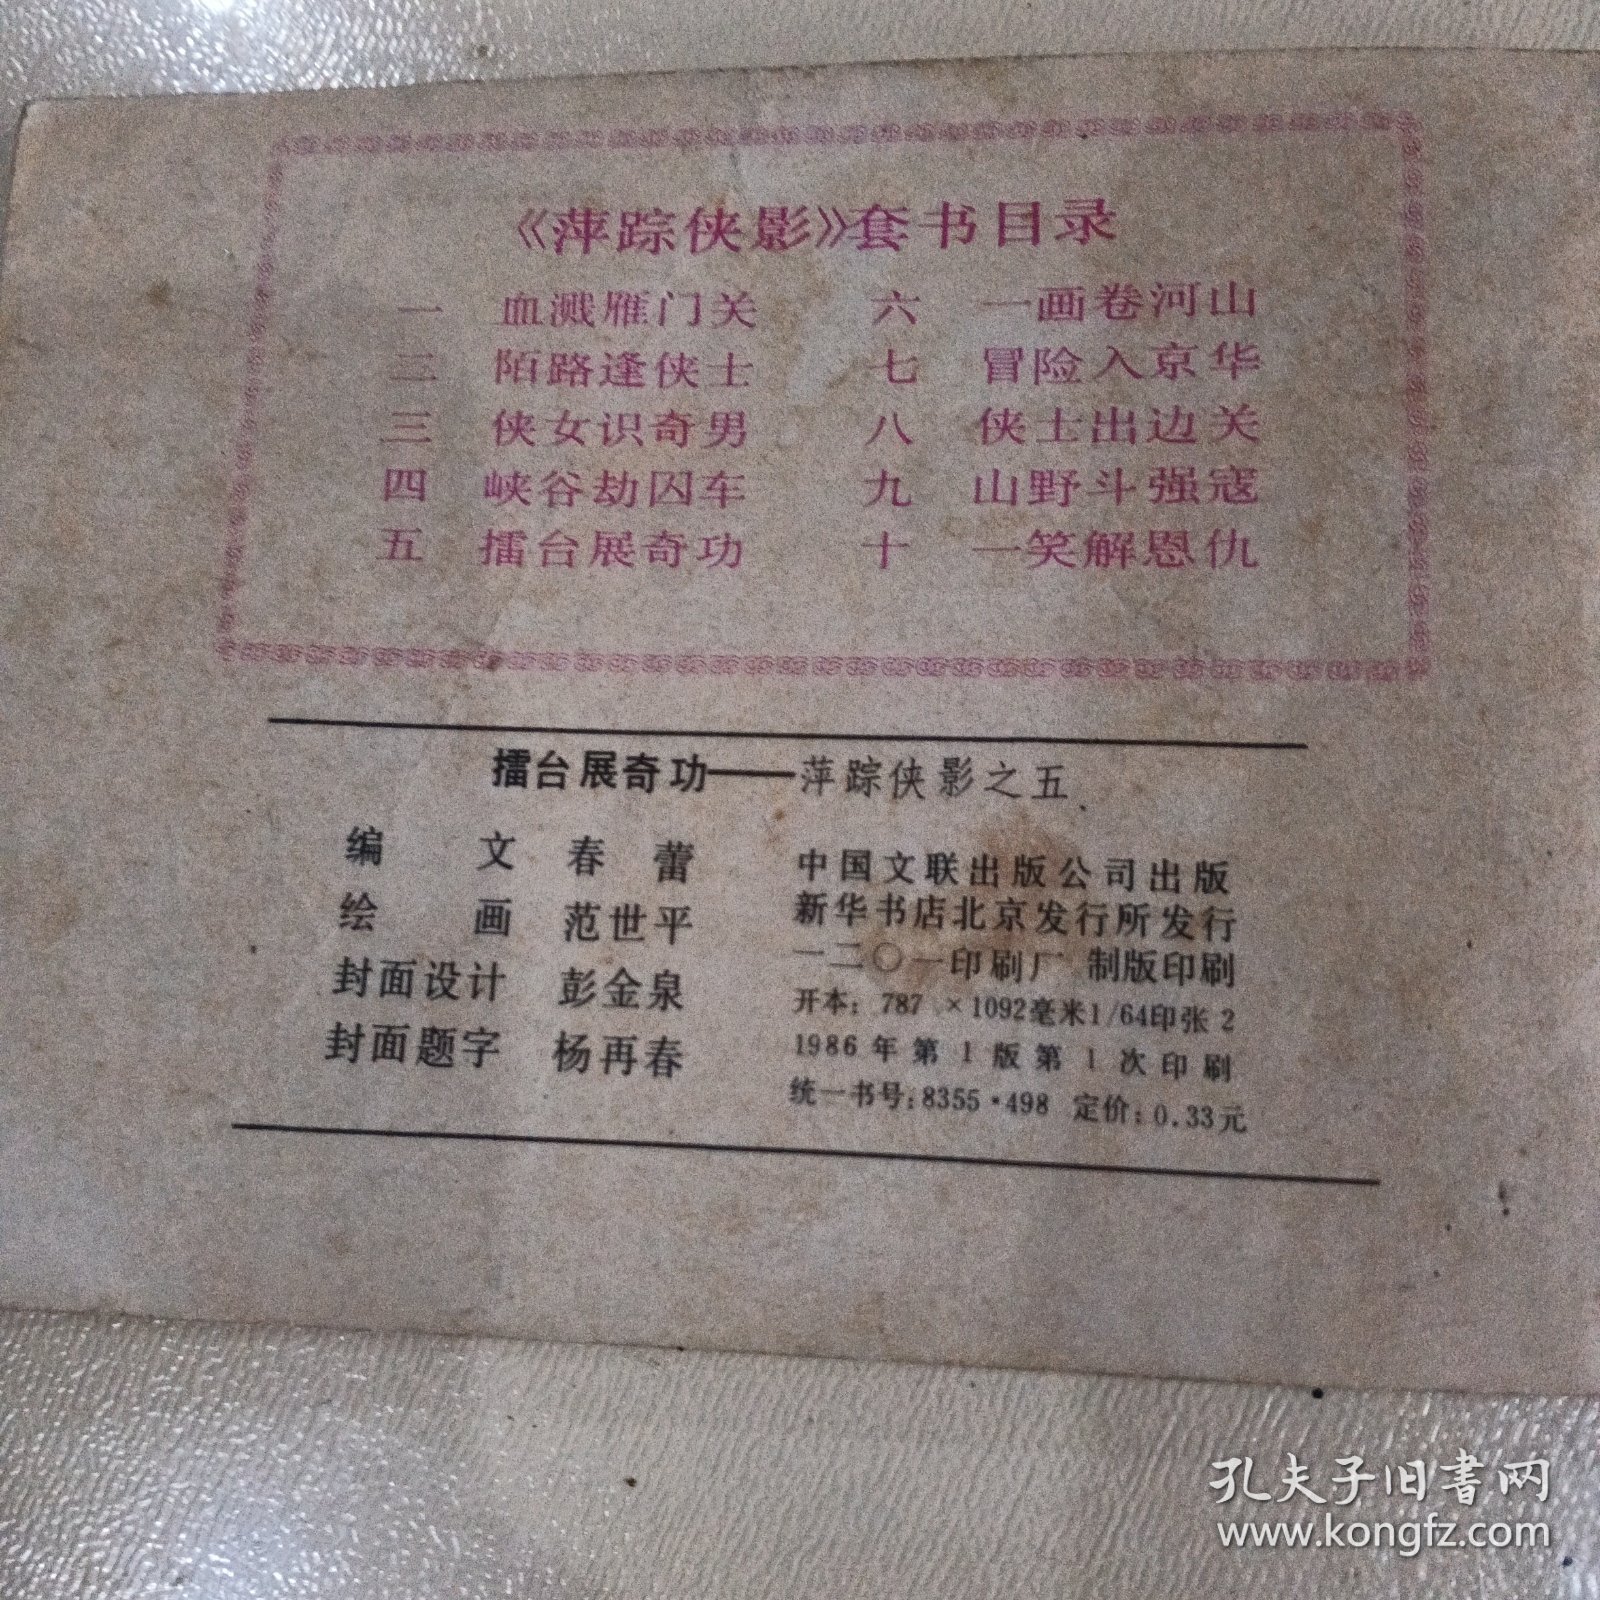 《萍踪侠影》套书目录
一 血溅雁门关
二 陌路逢侠士
三 侠女识奇男
四 峡谷劫囚车
五 擂台展奇功
六 一画卷河山
七 冒险入京华
八 侠士出边关
九 山野斗强寇
十 一笑解恩仇
擂台展奇功——萍踪侠影之五
编 文 春 蕾
绘 画 范世平
封面设计 彭金泉
封面题字 杨再春
中国文联出版公司出版
新华书店北京发行所发行
一二〇一印刷厂 制版印刷
开本：787×1092毫米1/64印张2
1986年第1版第1次印刷
统一书号：8355·498 定价：0.33元
孔夫子旧书网
www.kongfz.com